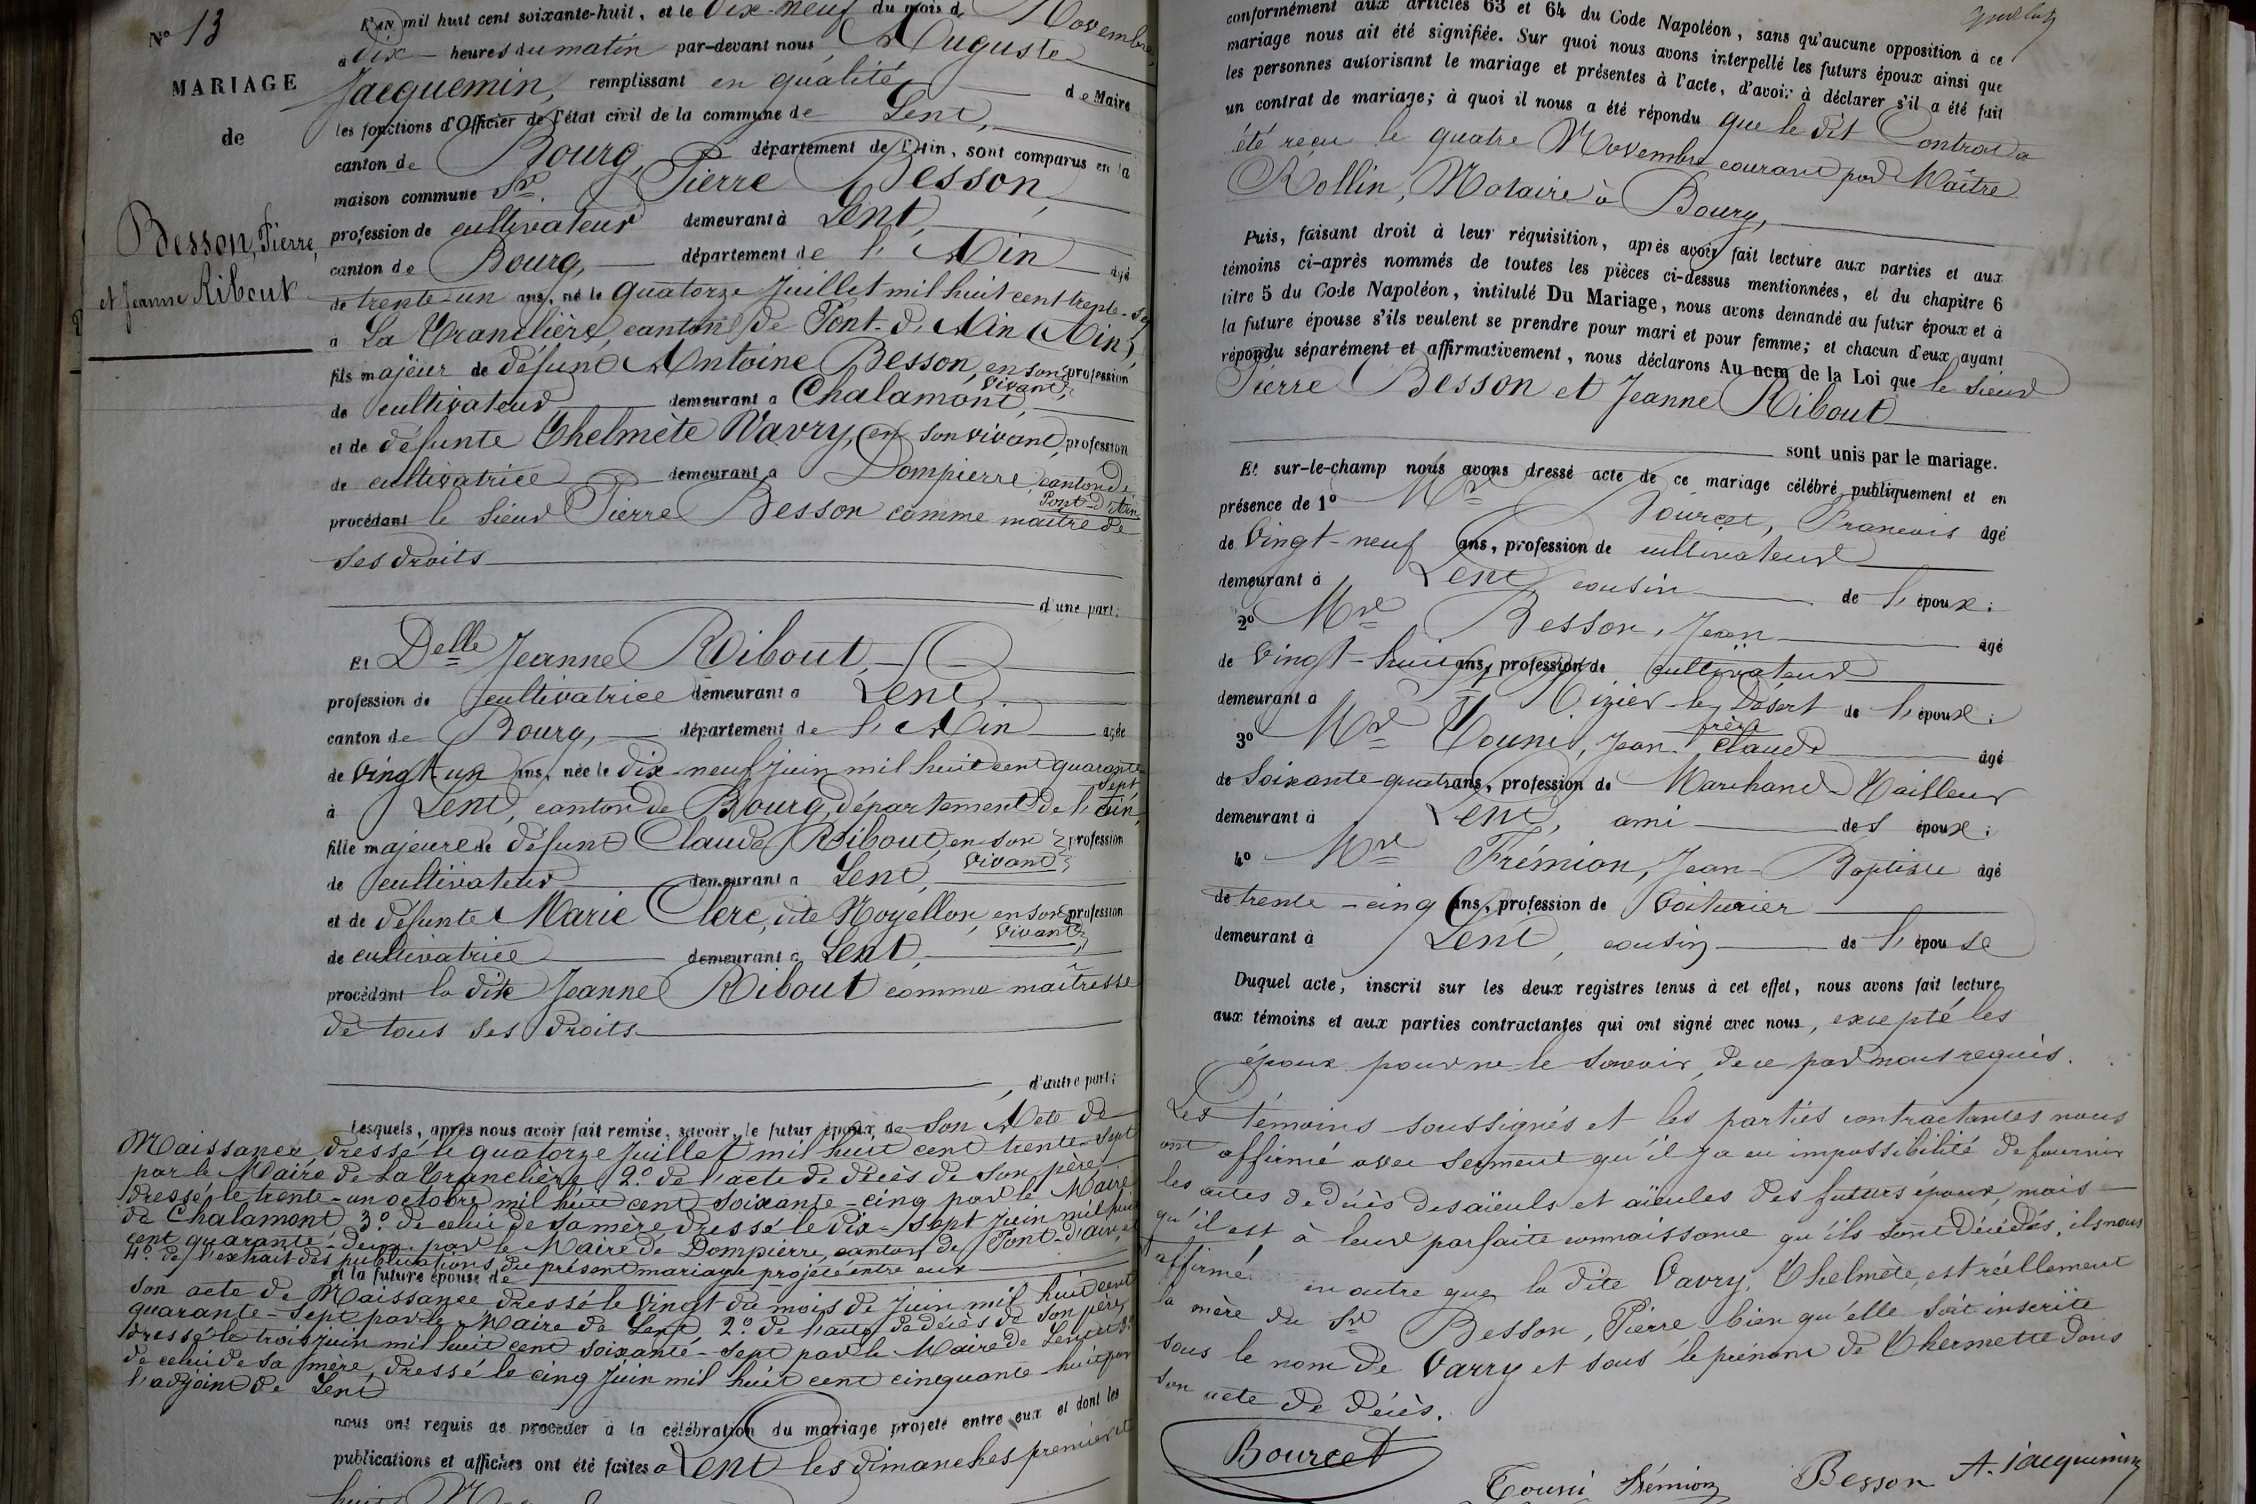 N° 13
MARIAGE
de
Besson, Pierre,
et Jeanne Ribout
L'AN mil huit cent soixante-huit, et le Dix-neuf du mois de Novembre
à dix heures du matin par-devant nous, Auguste
Jacquemin, remplissant en qualité de Maire
les fonctions d'Officier de l'état civil de la commune de Lent,
canton de Bourg, département de l'Ain, sont comparus en la
maison commune Sr. Pierre Besson,
profession de cultivateur demeurant à Lent,
canton de Bourg, département de l'Ain âgé
de trente-un ans, né le quatorze Juillet mil huit cent trente-sep
à La Tranclière, canton de Pont-d'Ain (Ain),
fils majeur de défunt Antoine Besson, en son vivant, profession
de cultivateur demeurant à Chalamont,
et de défunte Thelmète Vavry, en son vivant, profession
de cultivatrice demeurant à Dompierre, canton de Pont-d'Ain
procédant le Sieur Pierre Besson comme maître de
ses droits
d'une part;
Et Delle Jeanne Ribout,
profession de cultivatrice demeurant à Lent,
canton de Bourg, département de l'Ain âgée
de vingt-un ans, née le dix-neuf Juin mil huit cent quarante-sept
à Lent, canton de Bourg, département de l'Ain,
fille majeure de défunt Claude Ribout, en son vivant, profession
de cultivateur demeurant à Lent,
et de défunte Marie Clerc, dite Noyellon, en son vivant, profession
de cultivatrice demeurant à Lent,
procédant la dite Jeanne Ribout comme maîtresse
de tous ses droits
d'autre part;
Lesquels, après nous avoir fait remise, savoir, le futur époux, de son Acte de
Naissance dressé le quatorze Juillet mil huit cent trente-sept
par le Maire de La Tranclière, 2° de l'acte de décès de son père,
dressé le trente-un octobre mil huit cent soixante-cinq par le Maire
de Chalamont, 3° de celui de sa mère, dressé le dix-sept Juin mil huit
cent quarante-deux par le Maire de Dompierre, canton de Pont-d'Ain, et
4° de l'extrait des publications du présent mariage projeté entre eux
et la future épouse de
son acte de Naissance dressé le vingt du mois de Juin mil huit cent
quarante-sept par le Maire de Lent, 2° de l'acte de décès de son père,
dressé le trois juin mil huit cent soixante-sept par le Maire de Lent et 3°
de celui de sa mère, dressé le cinq Juin mil huit cent cinquante-huit par
l'adjoint de Lent
nous ont requis de procéder à la célébration du mariage projeté entre eux et dont les
publications et affiches ont été faites à Lent les dimanches premier et
conformément aux articles 63 et 64 du Code Napoléon, sans qu'aucune opposition à ce
mariage nous ait été signifiée. Sur quoi nous avons interpellé les futurs époux ainsi que
les personnes autorisant le mariage et présentes à l'acte, d'avoir à déclarer s'il a été fait
un contrat de mariage; à quoi il nous a été répondu que le dit Contrat a
été reçu le quatre Novembre courant par Maître
Rollin, Notaire à Bourg,
Puis, faisant droit à leur réquisition, après avoir fait lecture aux parties et aux
témoins ci-après nommés de toutes les pièces ci-dessus mentionnées, et du chapitre 6
titre 5 du Code Napoléon, intitulé Du Mariage, nous avons demandé au futur époux et à
la future épouse s'ils veulent se prendre pour mari et pour femme; et chacun d'eux ayant
répondu séparément et affirmativement, nous déclarons Au nom de la Loi que le Sieur
Pierre Besson et Jeanne Ribout
sont unis par le mariage.
Et sur-le-champ nous avons dressé acte de ce mariage célébré publiquement et en
présence de 1° Mr Bourcet, Francois âgé
de Vingt-neuf ans, profession de cultivateur
demeurant à Lent, cousin de l'époux;
2° Mr Besson, Jean âgé
de Vingt-huit ans, profession de cultivateur
demeurant à St Nizier-le-Désert frère de l'époux;
3° Mr Touni, Jean-Claude âgé
de Soixante-quatre ans, profession de Marchand Tailleur
demeurant à Lent, ami des époux;
4° Mr Frémion, Jean-Baptiste âgé
de trente-cinq ans, profession de Voiturier
demeurant à Lent, cousin de l'épouse
Duquel acte, inscrit sur les deux registres tenus à cet effet, nous avons fait lecture
aux témoins et aux parties contractantes qui ont signé avec nous, excepté les
époux pour ne le savoir, de ce par nous requis.
Les témoins soussignés et les parties contractantes nous
ont affirmé avec serment qu'il y a eu impossibilité de fournir
les actes de décès des aïeuls et aïeules des futurs époux, mais
qu'il est à leur parfaite connaissance qu'ils sont décédés, ils nous
affirmé en outre que la dite Vavry, Thelmète, est réellement
la mère du Sr Besson, Pierre bien qu'elle soit inscrite
sous le nom de Varry et sous le prénom de Thermette dans
son acte de décès.
Bourcet
Touni Frémion Besson A. Jacquemin